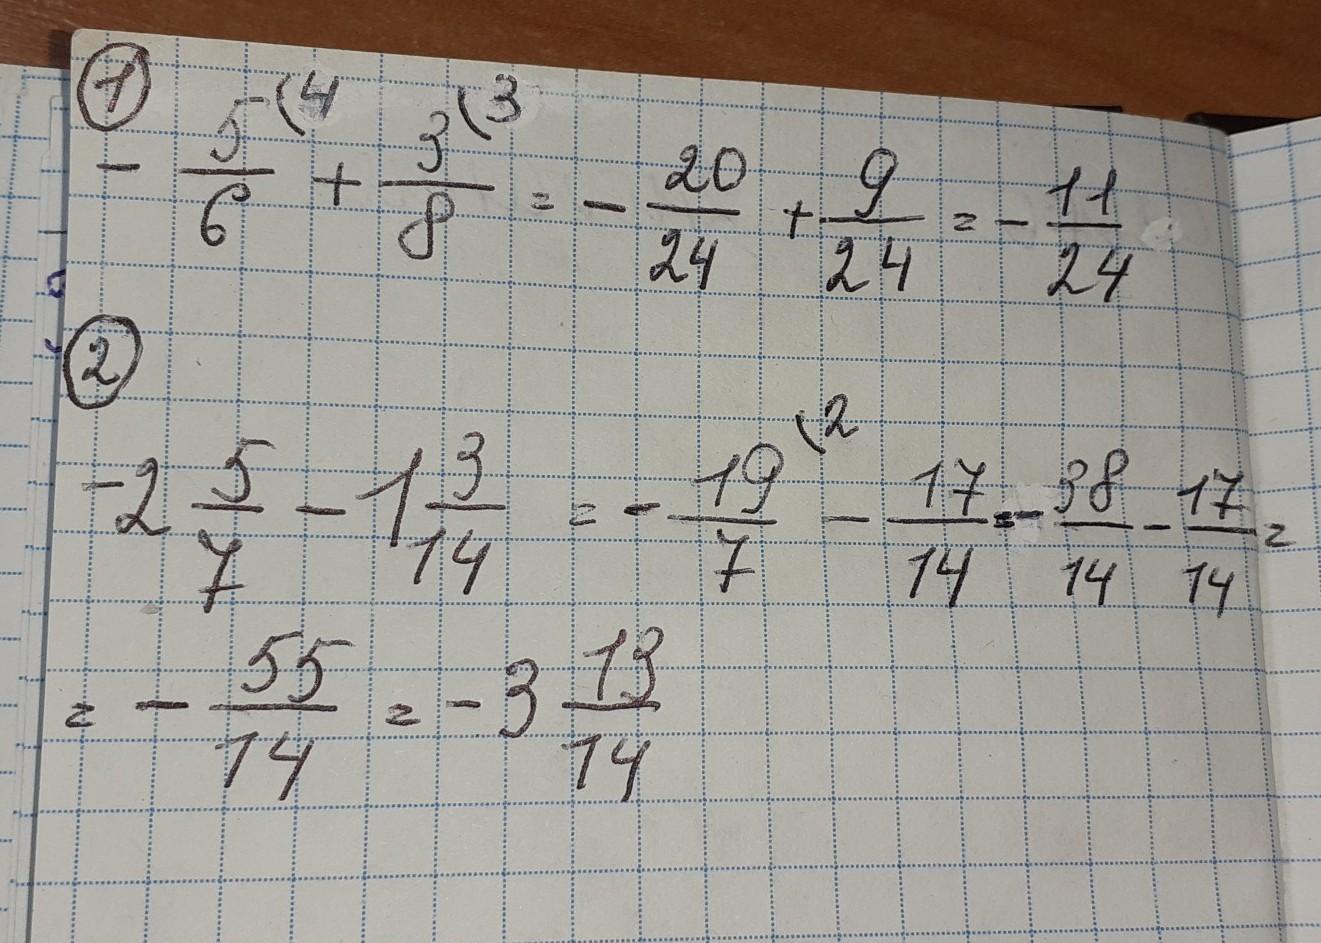 ①
- 5/6 (4 + 3/8 (3 = - 20/24 + 9/24 = - 11/24
②
-2 5/7 - 1 3/14 = - 19/7 (2 - 17/14 = - 38/14 - 17/14 =
= - 55/14 = -3 13/14